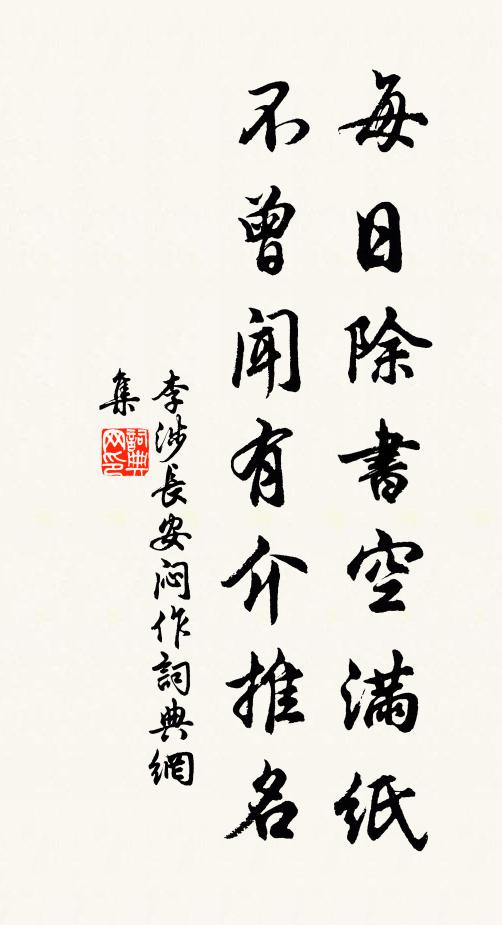 每日除書空滿紙
不曾聞有介推名
李涉長安悶作詞典網
集
詞典网印